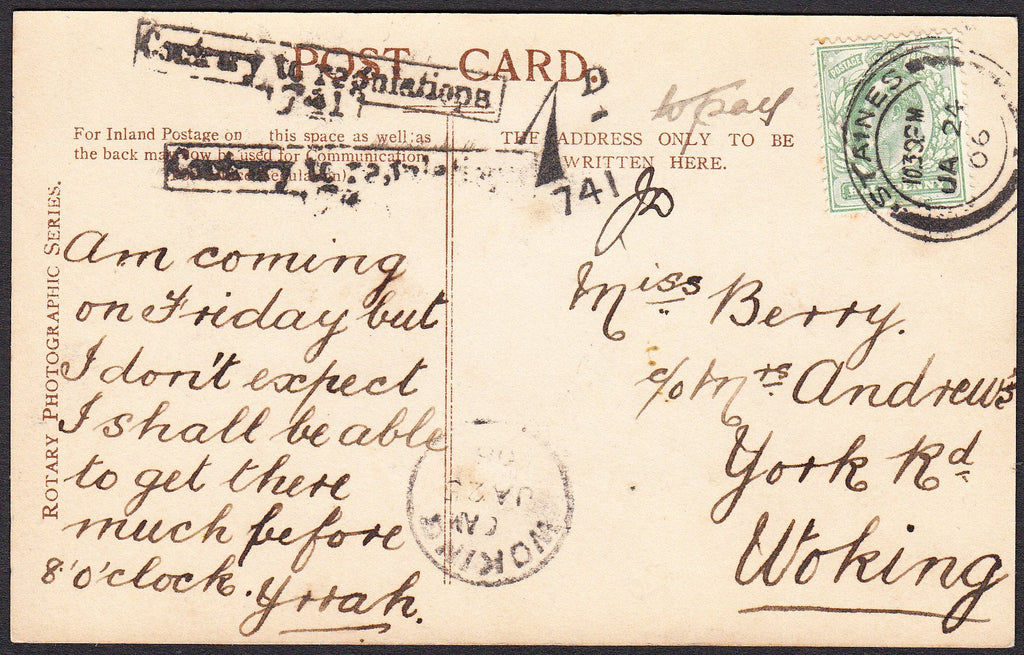 POST CARD.
Contrary to regulations
741
For Inland Postage only this space as well as
the back may now be used for Communication
Contrary to regulations
THE ADDRESS ONLY TO BE
WRITTEN HERE.
D
741
to pay
STAINES
10 30 PM
JA 24
06
POSTAGE
ROTARY PHOTOGRAPHIC SERIES.
Am coming
on Friday but
I don't expect
I shall be able
to get there
much before
8 o'clock. Yrrah.
To
Miss Berry.
c/o Mrs Andrews
York Rd
Woking
WOKING
JA 25
06